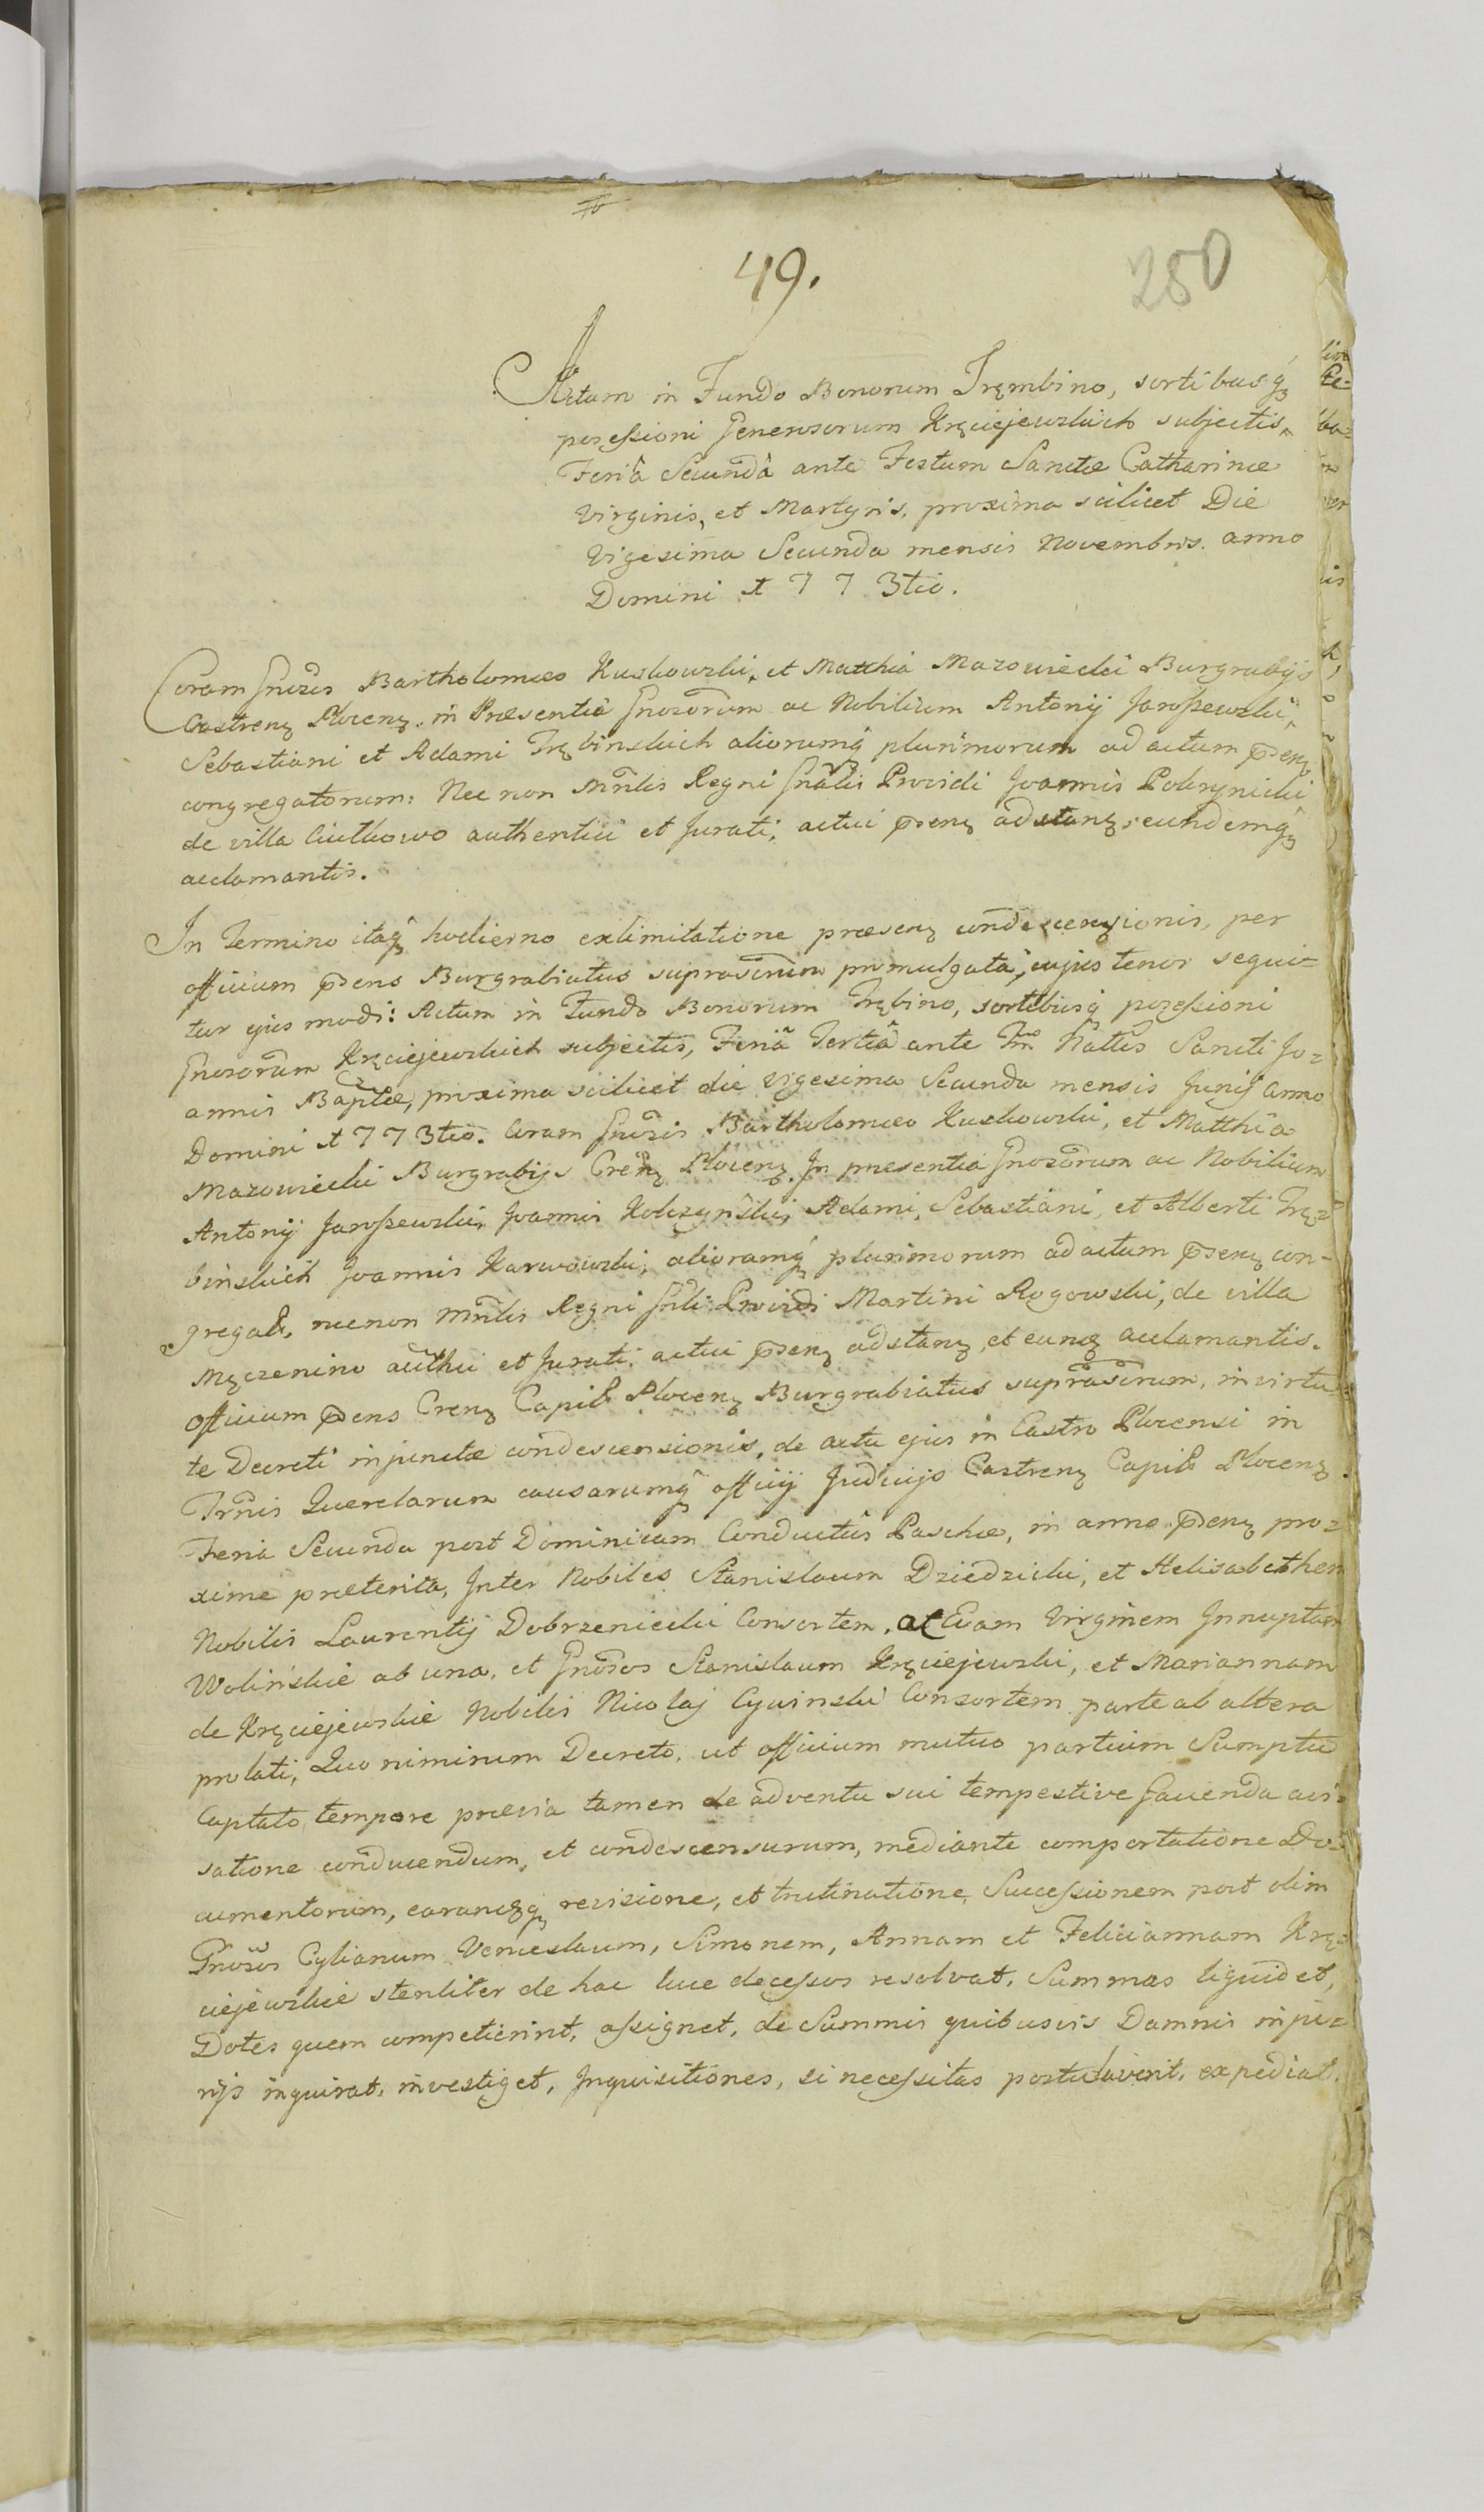 49.
250
Actum in Fundo Bonorum Trębino, sortibusq́ꝫ
pozeſsioni Generosorum Kręciejewskich subjectis,
Feriâ Secundâ ante Festum Sanctæ Catharinæ
Virginis, et Martyris, proxima scilicet Die
Vigesima Secunda mensis Novembris. anno
Domini 1773tio.
Coram Gnosis Bartholomæo Kuskowski, et Matthia Mazowiecki Burgrabijs
Castrenꝫ Plocenꝫ. in Præsentiâ Gnosorum ac Nobilium Antonij Jaroſzewski,
Sebastiani et Adami Trębinskich aliorumq́ plurimorum ad actum p̄senꝫ
congregatorum: Nec non Mn̄lis Regni Gn̄alis Providi Joannis Pokrynicki
de villa Ciutkowo authentici et Jurati, actui p̄senꝫ adstanꝫ, eundemq́ꝫ
acclamantis.
In Termino itaq́ꝫ hodierno exlimitatione præsenꝫ condescenꝫionis, per
officium p̄sens Burgrabiatus suprascrūm promulgatâ, cujus tenor sequi=
tur ejus modi: Actum in Fundo Bonorum Trębino, sortibusq́ pozeſsioni
Gnosorum Kręciejewskich subjectis, Feriâ Tertiâ ante Fm̄ Nattis Sancti Jo=
annis Baptæ, proxima scilicet die Vigesima Secunda mensis Junij Anno
Domini 1773tio. Coram Gnosis Bartholomæo Kuskowski, et Matthia
Mazowiecki Burgrabijs Crenꝫ Plocenꝫ. In præsentia Gnosorum ac Nobilium
Antonij Jaroſzewski, Joannis Kolczyński, Adami, Sebastiani, et Alberti Trę=
binskich Joannis Karwowski, aliorumq́ꝫ plurimorum ad actum p̄senꝫ con-
gregat. necnon Mn̄lis Regni Gn̄lis Providi Martini Rogowski, de villa
Męczenino auth̄ci et Jurati. actui p̄senꝫ adstanꝫ, et eunꝫ acclamantis.
Officium p̄sens Crenꝫ Capil Plocenꝫ Burgrabiatus suprascrum, in virtu=
te Decreti injunctæ condescensionis, de actu ejus in Castro Plocensi in
Trn̄is Querelarum causarumq́ꝫ officij Judicijs Castrenꝫ Capil Plocenꝫ.
Feria Secunda post Dominicam Conductus Paschæ, in anno p̄senꝫ pro=
xime præterita, Inter Nobiles Stanislaum Dziedzicki, et Helisabethem
Nobilis Laurentij Dobrzeniecki Consortem, ac Evam Virginem Innuptam
Wolińskie ab una, et Gnosos Stanislaum Kręciejewski, et Mariannam
de Kręciejewskie Nobilis Nicolaj Cywinski Consortem parte ab altera
prolati, Quo nimirum Decreto, ut officium mutuo partium Sumptu
Captato tempore prævia tamen de adventu sui tempestive facienda avi=
satione conducendum, et condescensurum, mediante comportatione Do=
cumentorum, eorunꝫqꝫ revisione, et trutinatione, Succeſsionem post olim
Gnosos Cylianum Venceslaum, Simonem, Annam et Feliciannam Krę=
ciejewskie steriliter de hac luce deceſsos resolvat. Summas liquidet,
Dotes quem competierint, aſsignet, de Summis quibusvis Damnis inju=
rijs inquirat, investiget, Inquisitiones, si neceſsitas postulaverit, expediat.